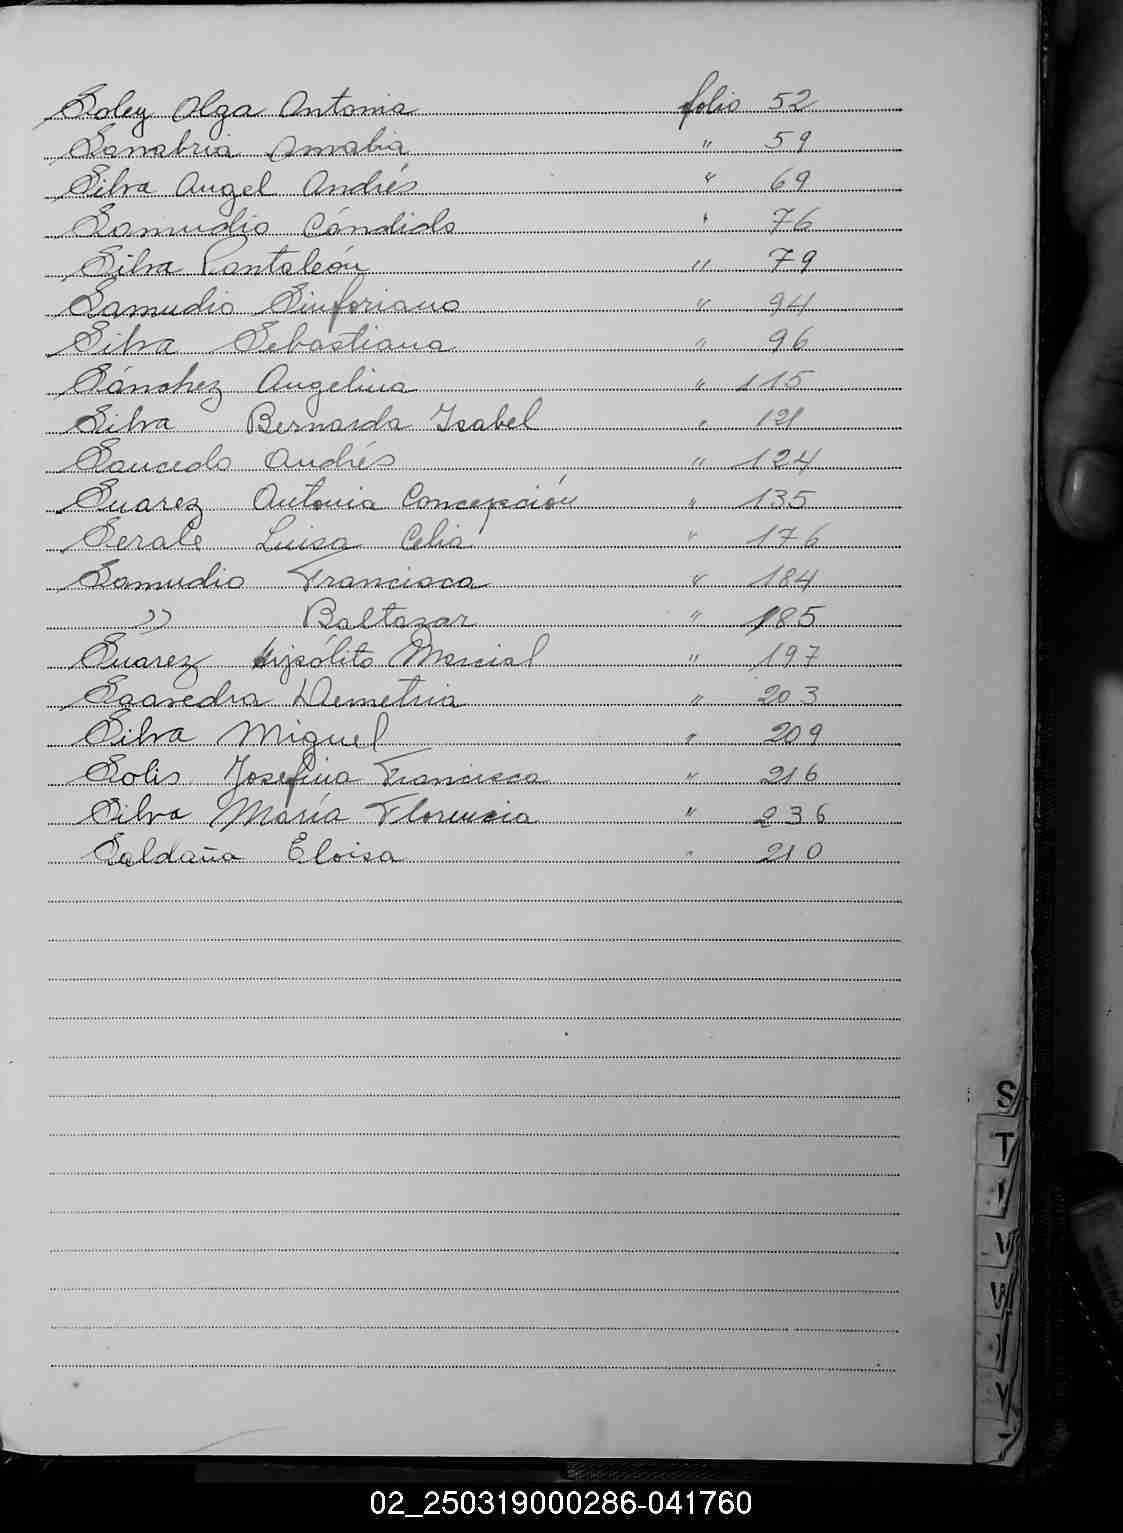 Soley Olga Antonia folio 52
Sanabria Amabia " 59
Silva Angel Andrés " 69
Samudio Cándido " 76
Silva Pantaleón " 79
Samudio Sinforiano " 94
Silva Sebastiana " 96
Sánchez Angelina " 115
Silva Bernarda Isabel " 121
Saucedo Andrés " 124
Suarez Antonia Concepción " 135
Serale Luisa Celia " 176
Samudio Francisca " 184
" Baltazar " 185
Suarez Hipólito Marcial " 197
Saavedra Demetria " 203
Silva Miguel " 209
Solis Josefina Francisca " 216
Silva María Florencia " 236
Saldaña Eloisa " 210
S
T
V
W
Y
02_250319000286-041760